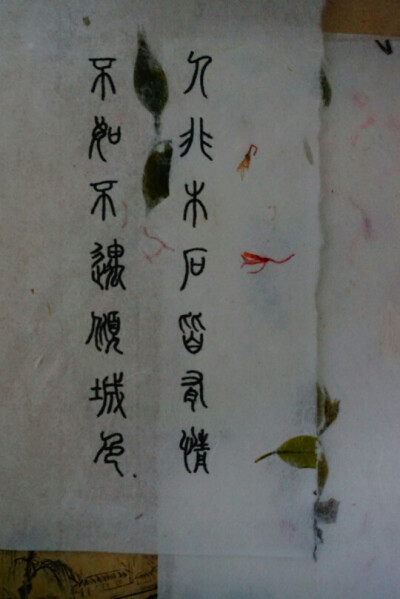 人非木石皆有情
不如不遇傾城色